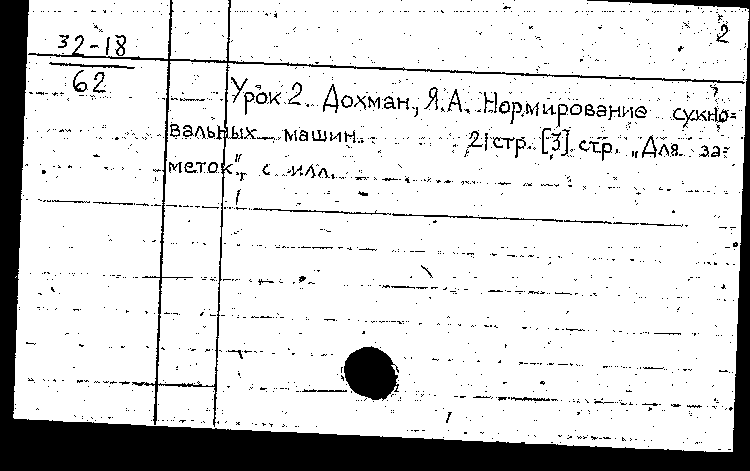 2
32-18
62
Урок 2. Дохман, Я.А. Нормирование сукно-
вальных машин. 21 стр. [3] стр. „Для за-
меток", с илл.